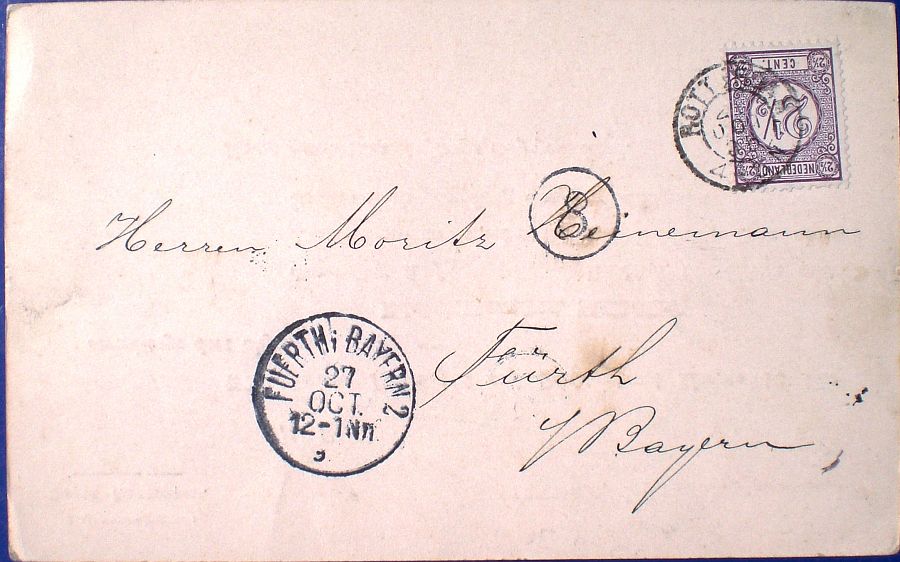 CENT.
2½
NEDERLAND
ROTT
8
Herren Moritz Heinemann
Fürth
i/Bayern
FUERTH i BAYERN 2
27
OCT.
12-1 Nm